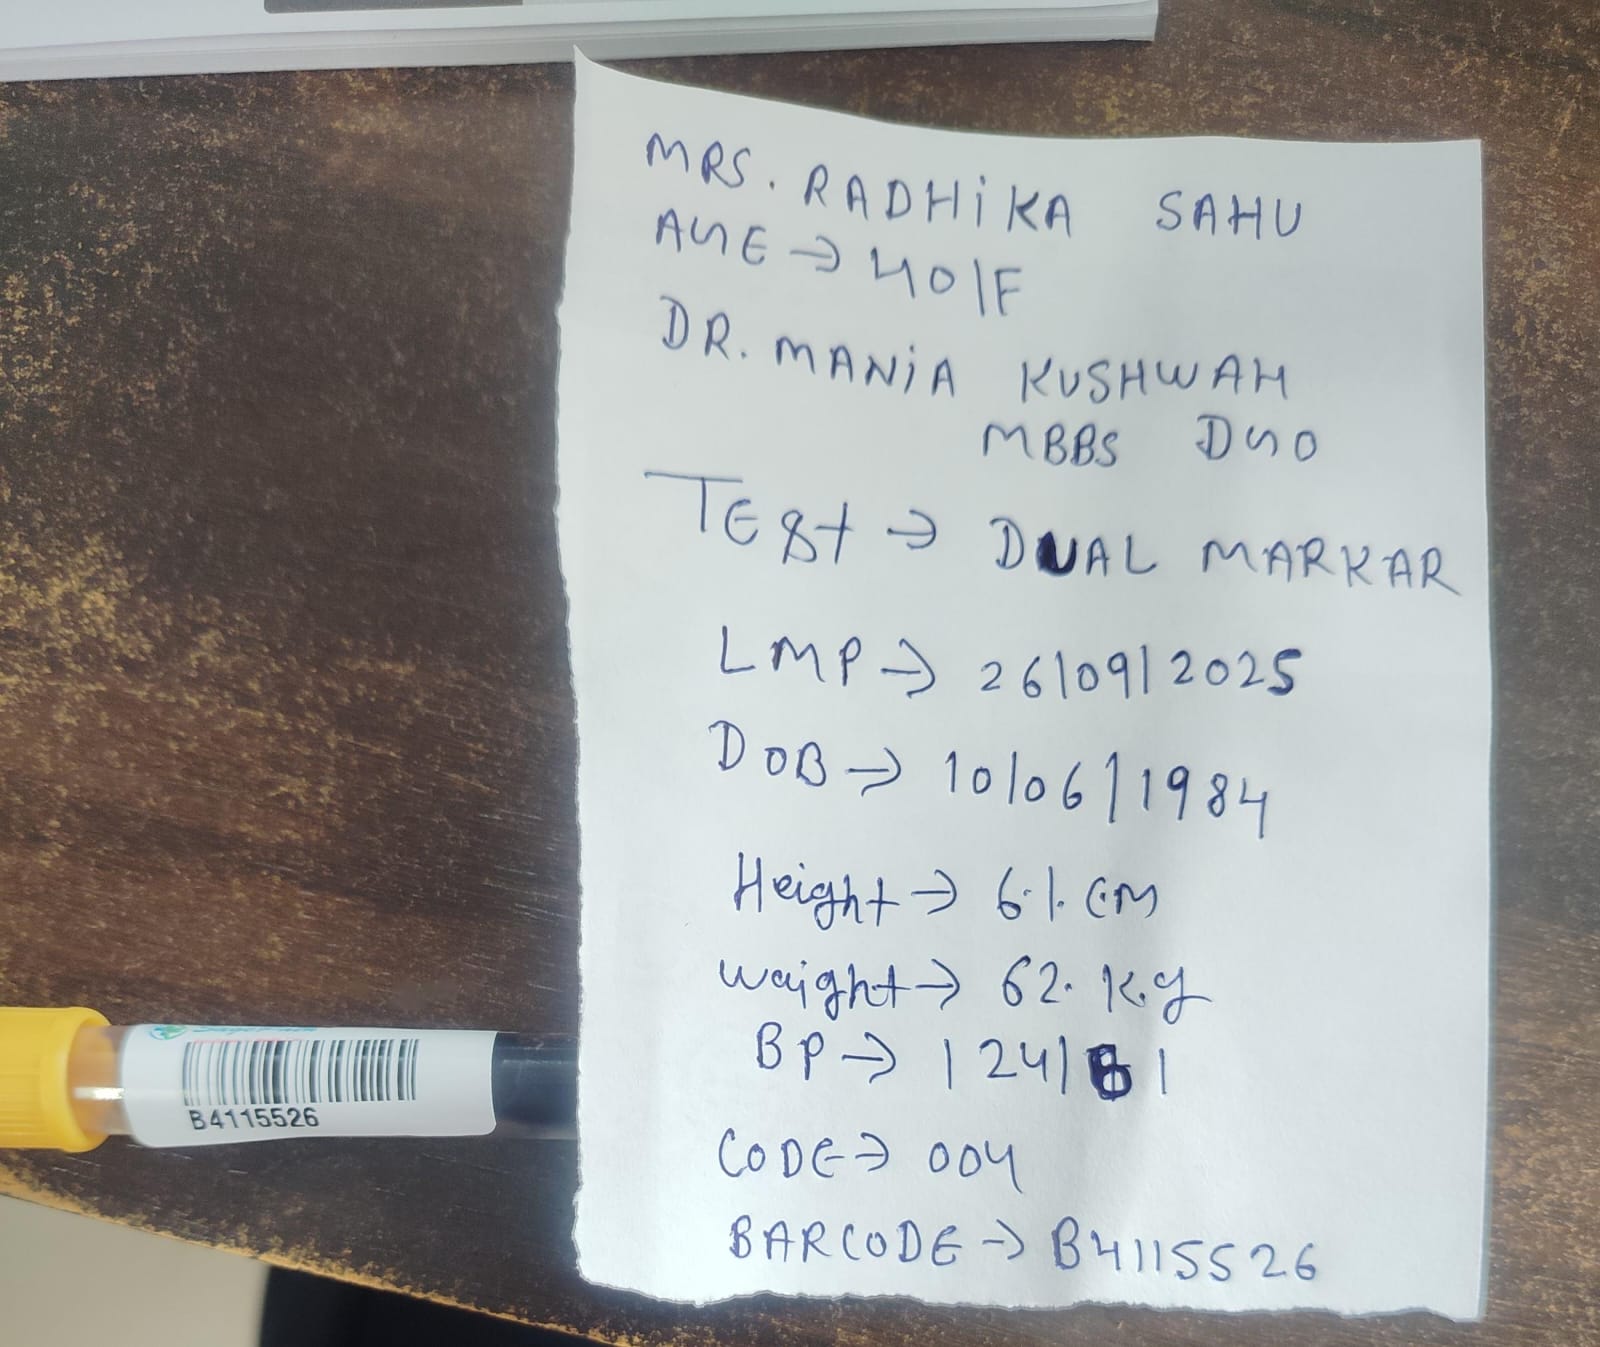 MRS. RADHiKA SAHU
AGE → 40/F
DR. MANiA KUSHWAH
MBBS DGO
TEST → DUAL MARKAR
LMP → 26/09/2025
DOB → 10/06/1984
Height → 6.1. CM
Waight → 62. K.g
BP → 124/81
CODE → 004
BARCODE → B4115526
B4115526